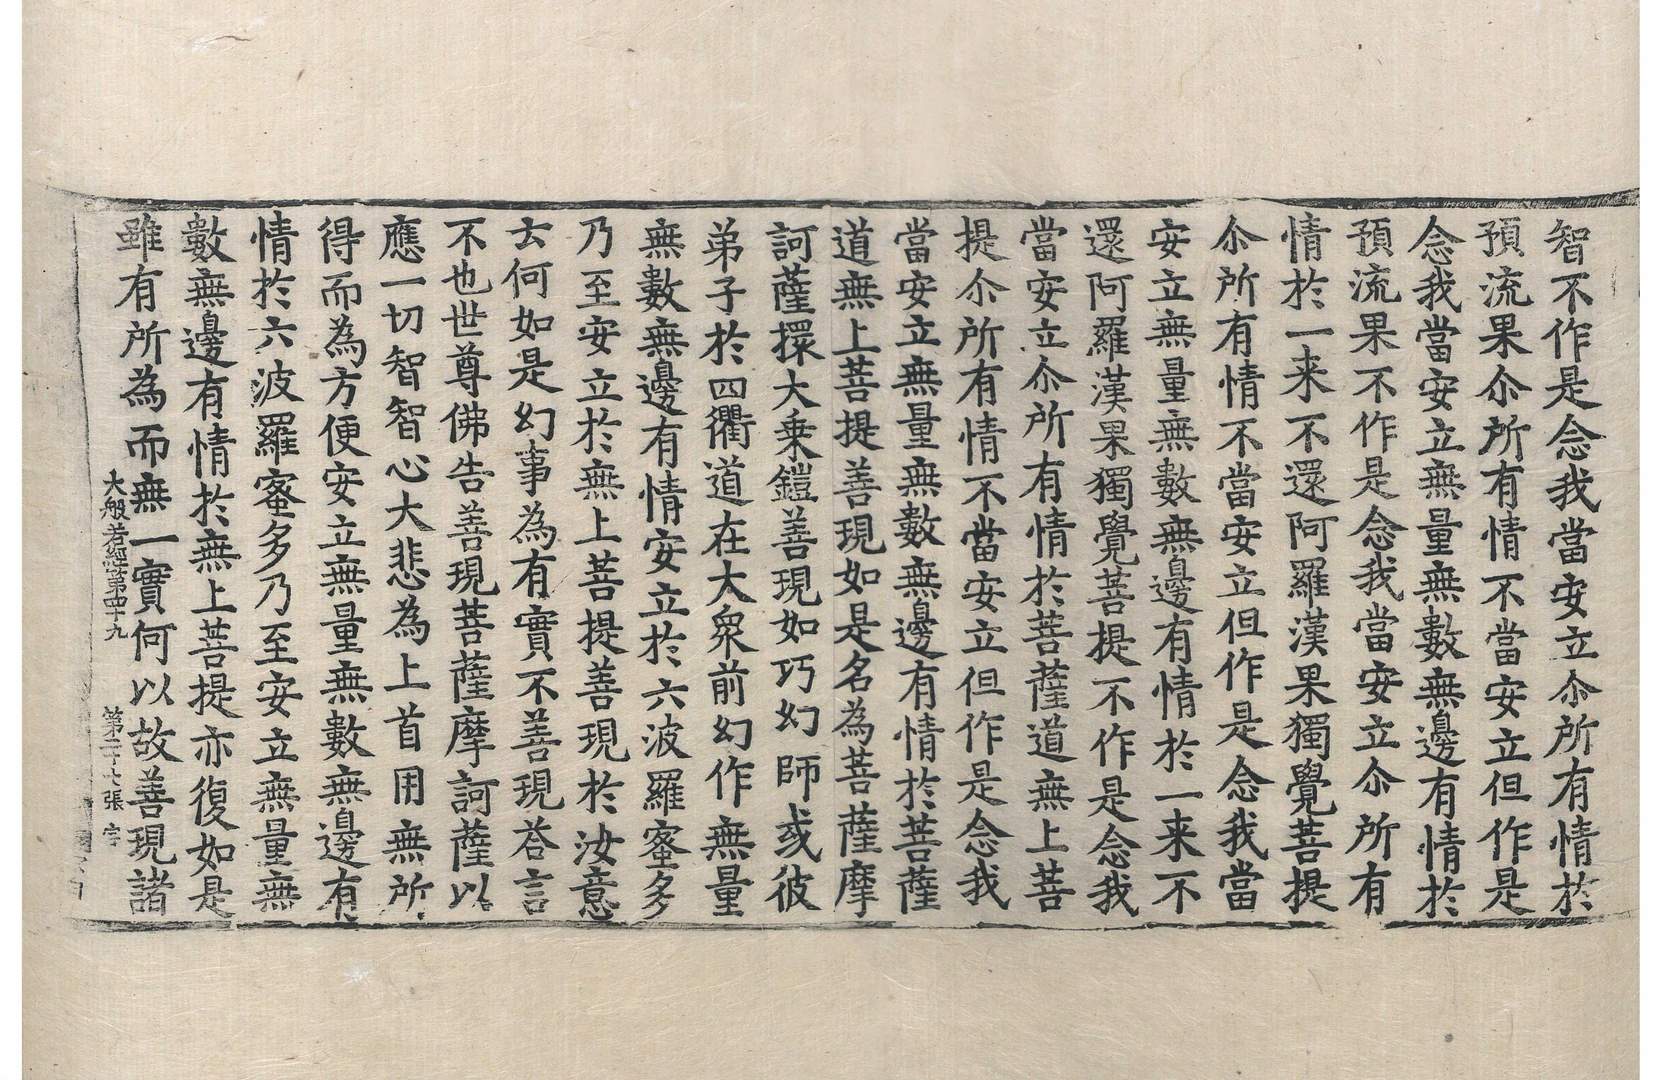 智不作是念我當安立尒所有情於
預流果尒所有情不當安立但作是
念我當安立無量無數無邊有情於
預流果不作是念我當安立尒所有
情於一来不還阿羅漢果獨覺菩提
尒所有情不當安立但作是念我當
安立無量無數無邊有情於一来不
還阿羅漢果獨覺菩提不作是念我
當安立尒所有情於菩薩道無上菩
提尒所有情不當安立但作是念我
當安立無量無數無邊有情於菩薩
道無上菩提善現如是名為菩薩摩
訶薩擐大乗鎧善現如巧幻師或彼
弟子於四衢道在大衆前幻作無量
無數無邊有情安立於六波羅蜜多
乃至安立於無上菩提善現於汝意
云何如是幻事為有實不善現荅言
不也世尊佛告善現菩薩摩訶薩以
應一切智智心大悲為上首用無所
得而為方便安立無量無數無邊有
情於六波羅蜜多乃至安立無量無
數無邊有情於無上菩提亦復如是
雖有所為而無一實何以故善現諸
大般若經第四十九 第二十七張 宇